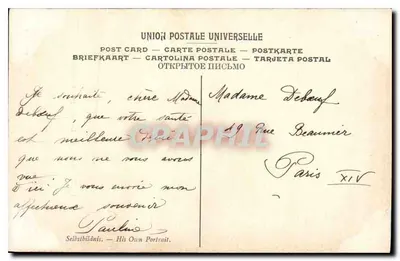 UNION POSTALE UNIVERSELLE
POST CARD — CARTE POSTALE — POSTKARTE
BRIEFKAART — CARTOLINA POSTALE — TARJETA POSTAL
ОТКРЫТОЕ ПИСЬМО
Je souhaite, chère Madame
Debœuf, que votre santé
est meilleure
que nous ne vous avons
vue
d'ici Je vous envoie mon
affectueux souvenir
Pauline
Madame Debœuf
19 Rue Beaunier
Paris XIV
CPARAMA
Selbstbildnis. — His Own Portrait.